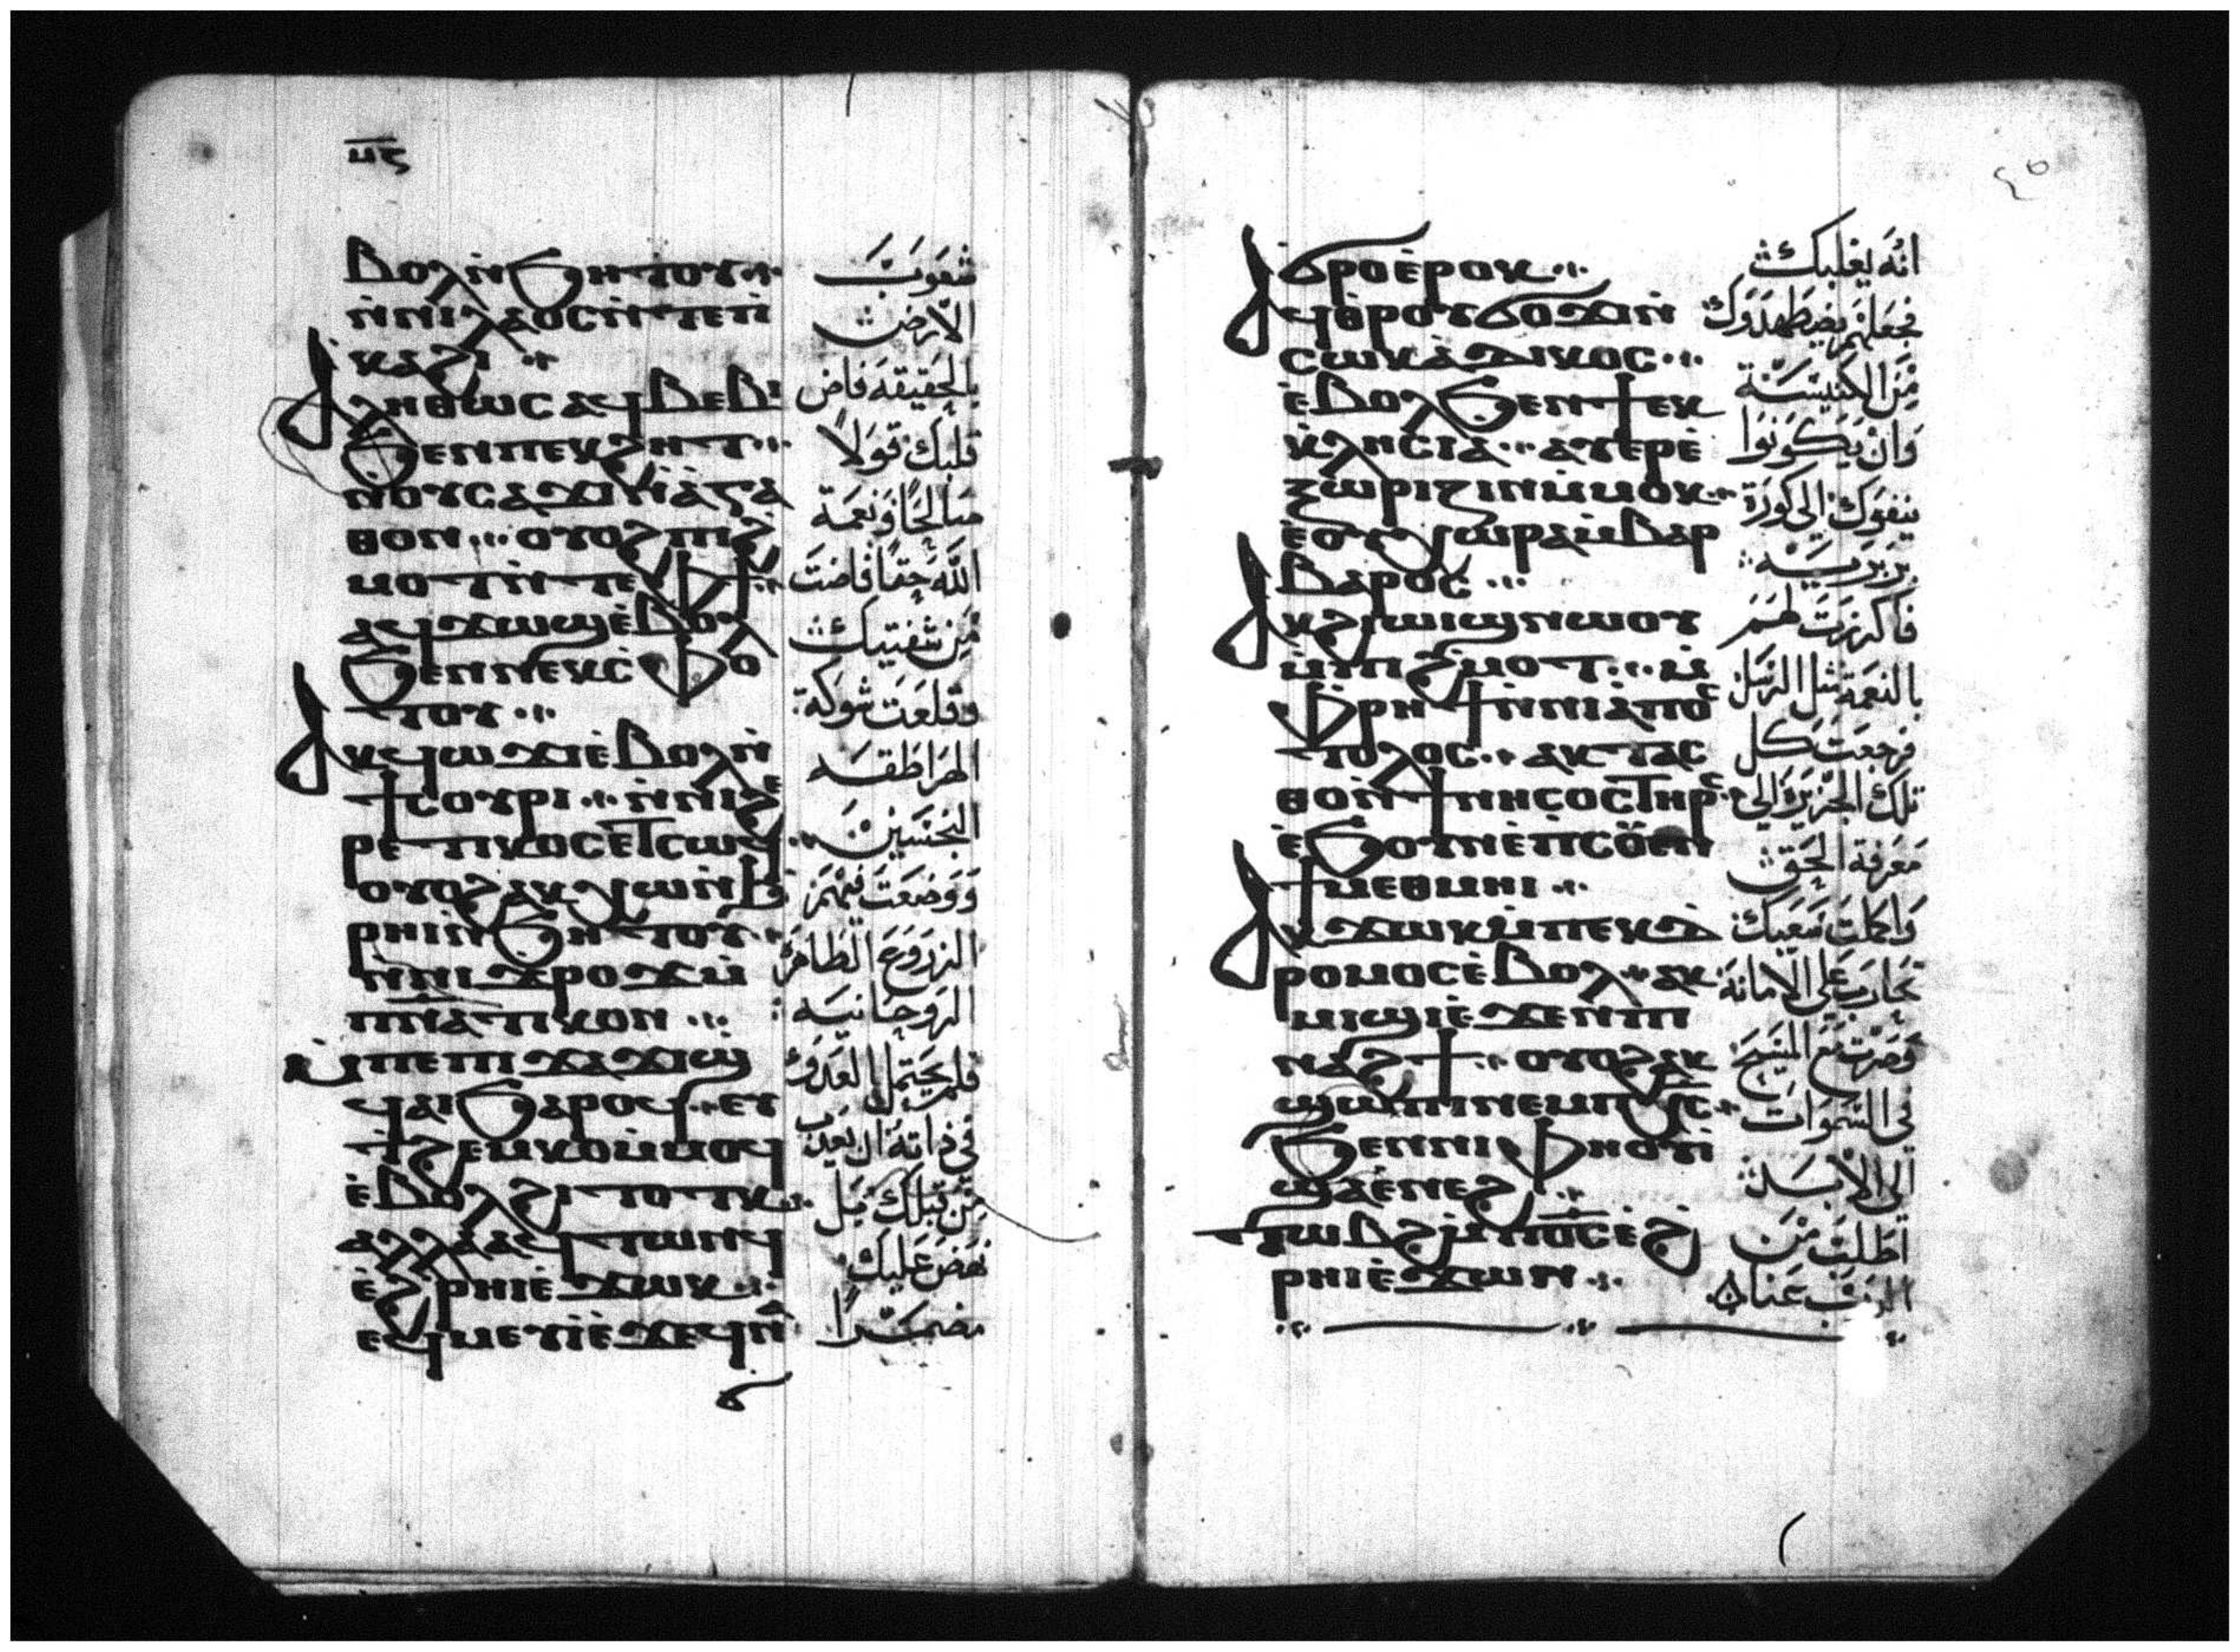 ⲙ̅ⲋ̅
ⲃⲟⲗ ⲛ̀ϧⲏⲧⲟⲩ
ⲛ̀ⲛⲓⲗⲁⲟⲥ ⲛ̀ⲧⲉ ⲡ̀
ⲕⲁϩⲓ
ⲁⲗⲏⲑⲱⲥ ⲁϥⲃⲉⲃⲓ
ϧⲉⲛ ⲡⲉⲕϩⲏⲧ
ⲛⲟⲩⲥⲁϫⲓ ⲛ̀ⲁⲅⲁ
ⲑⲟⲛ ⲟⲩⲟϩ ⲡⲓϩ̀
ⲙⲟⲧ ⲛ̀ⲧⲉ ⲫϯ
ⲁϥϫⲱϣ ⲉ̀ⲃⲟⲗ
ϧⲉⲛ ⲛⲉⲕⲥ̀ⲫⲟ
ⲧⲟⲩ
ⲁⲕϥⲱϫⲓ ⲉ̀ⲃⲟⲗ ⲛ̀
ϯⲥⲟⲩⲣⲓ ⲛ̀ⲛⲓϩⲉ
ⲣⲉⲧⲓⲕⲟⲥ ⲉⲧⲥⲱϥ
ⲟⲩⲟϩ ⲁⲕⲭⲱ ⲛ̀ϩ
ⲣⲏⲓ ⲛ̀ϧⲏⲧⲟⲩ
ⲛ̀ⲛⲓϫⲣⲟϫ ⲙ̀
ⲡ̅ⲛ̅ⲁ̅ⲧⲓⲕⲟⲛ
ⲙ̀ⲡⲉ ⲡⲓϫⲁϫⲓ ϣ̀
ϥⲁⲓ ϧⲁⲣⲟϥ ⲉⲩ
ϯϩⲉⲙⲕⲟ ⲙ̀ⲙⲟϥ
ⲉ̀ⲃⲟⲗ ϩⲓⲧⲟⲧⲕ
ⲁⲗⲗⲁ ⲁϥⲧⲱⲛϥ
ⲉ̀ϩ̀ⲣⲏⲓ ⲉ̀ϫⲱⲕ
ⲉϥⲙⲉⲩⲓ̀ ⲉ̀ϫⲉ ϥⲛⲁ
شعوب
الارض
بالحقيقه فاض
قلبك قولا
صالحا ونعمة
الله حقا فاضت
من شفتيك
وقلعت شوكة
الهراطقه
النجسين
ووضعت فيهم
الزروع الطاهره
الروحانيه
فلم يحتمل العدو
في ذاته ان يعذب
من قبلك بل
نهض عليك
مفتكرا
ϭⲣⲟ ⲉ̀ⲣⲟⲕ
ⲁϥⲑⲣⲟⲩϭⲟϫⲓ ⲛ̀
ⲥⲱⲕ ⲁ̀ⲇⲓⲕⲟⲥ
ⲉ̀ⲃⲟⲗ ϧⲉⲛ ϯⲉⲕ
ⲕ̀ⲗⲏⲥⲓⲁ ⲁⲩⲉⲣⲉ̀
ⲝⲱⲣⲓⲍⲓⲛ ⲙ̀ⲙⲟⲕ
ⲉ̀ⲟⲩⲭⲱⲣⲁ ⲙ̀ⲃⲁⲣ
ⲃⲁⲣⲟⲥ
ⲁⲕϩⲓⲱⲓϣ ⲛⲱⲟⲩ
ⲙ̀ⲡⲓϩ̀ⲙⲟⲧ ⲙ̀
ⲫⲣⲏϯ ⲛ̀ⲛⲓⲁ̀ⲡⲟⲥ
ⲧⲟⲗⲟⲥ ⲁⲕⲧⲁⲥ
ⲑⲟ ⲛ̀ϯⲛⲏⲥⲟⲥ ⲧⲏⲣⲥ
ⲉ̀ϧⲟⲩⲛ ⲉ̀ⲡ̀ⲥⲟⲩⲉⲛ
ϯⲙⲉⲑⲙⲏⲓ
ⲁⲕϫⲱⲕ ⲙ̀ⲡⲉⲕⲇ
ⲣⲟⲙⲟⲥ ⲉ̀ⲃⲟⲗ ⲁⲕ
ⲙⲓϣⲓ ⲉ̀ϫⲉⲛ ⲡⲓ
ⲛⲁϩϯ ⲟⲩⲟϩ ⲁⲕ
ϣⲱⲡⲓ ⲛⲉⲙ ⲡ̅ⲭ̅ⲥ̅
ϧⲉⲛ ⲛⲓⲫⲏⲟⲩⲓ̀
ϣⲁ ⲉ̀ⲛⲉϩ
ⲧⲱⲃϩ ⲙ̀ⲡ̅ⲟ̅ⲥ̅ ⲉ̀ϩ̀
ⲣⲏⲓ ⲉ̀ϫⲱⲛ
انه يغلبك
فجعلهم يضطهدوك
من الكنيسة
وان يكونوا
ينفوك الى كورة
بربريه
فاكرزت لهم
بالنعمة مثل الرسل
فرجعت كل
تلك الجزيره الى
معرفة الحق
واكملت سعيك
تحارب على الامانة
وصرت مع المسيح
في السموات
الى الابد
اطلب من
الرب عنا